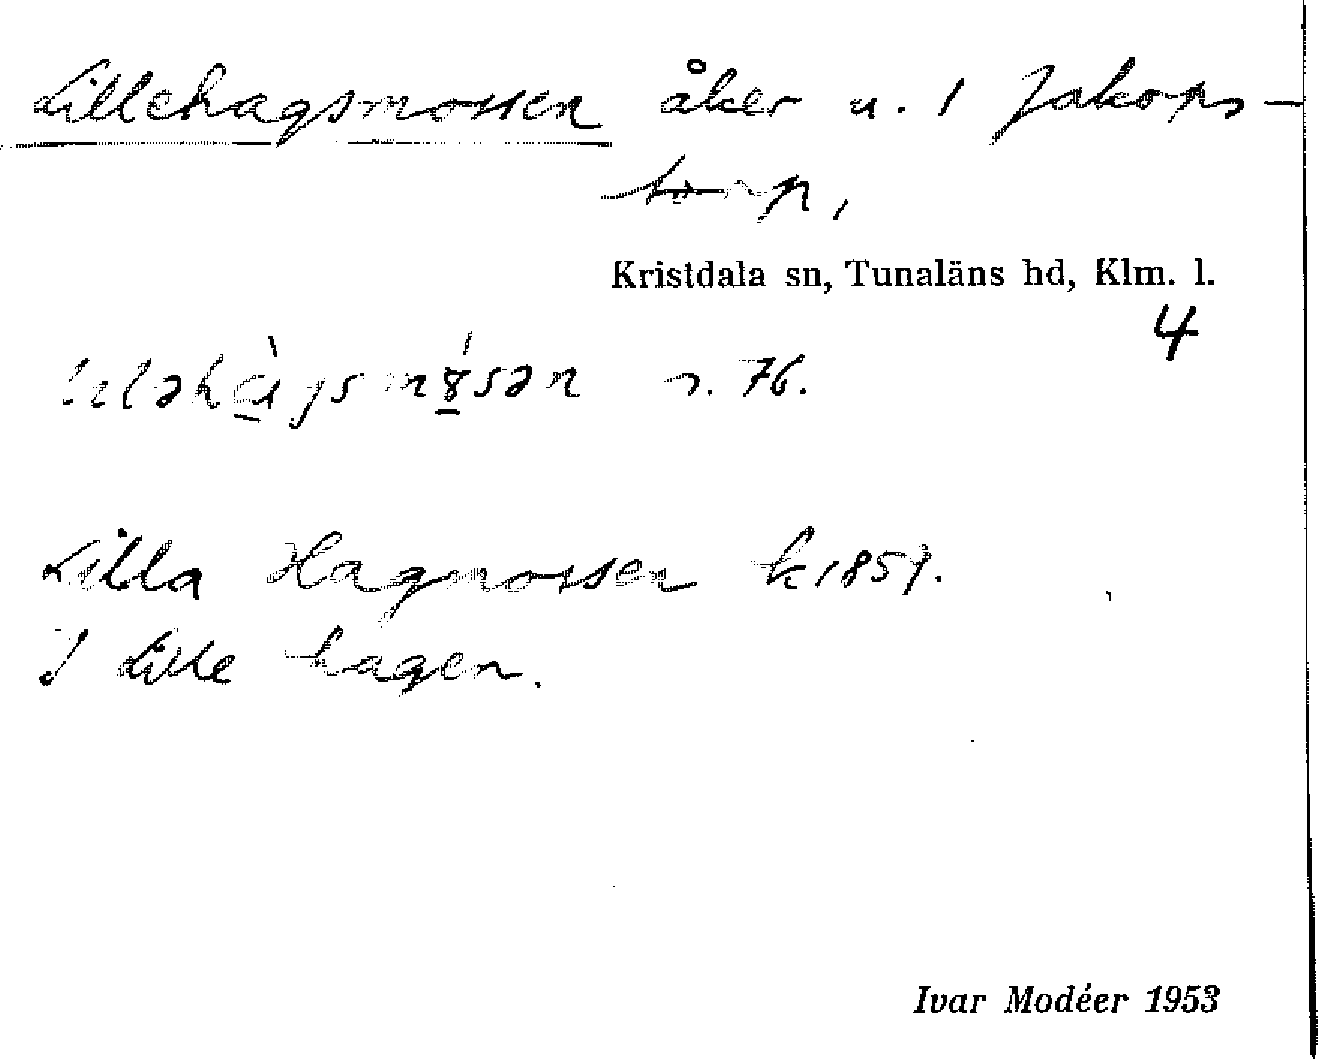 Lillehagsmossen åker u. 1 Jakops-
torp,
Kristdala sn, Tunaläns hd, Klm. l.
4
s. 76.
Lilla Hagmossen k 1859.
I Lille hagen.
Ivar Modéer 1953